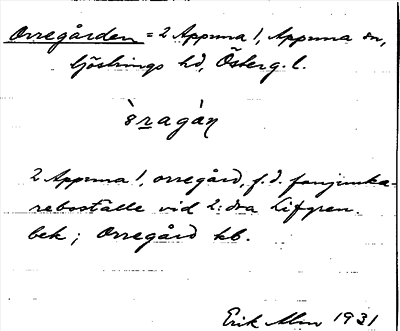 Orregården = 2 Appuna 1, Appuna sn,
Göstrings hd, Österg. l.
2 Appuna 1, orregård, f.d. fanjunka-
reboställe vid 2:dra Lifgren.
bek; Orregård kb.
Erik Alm 1931